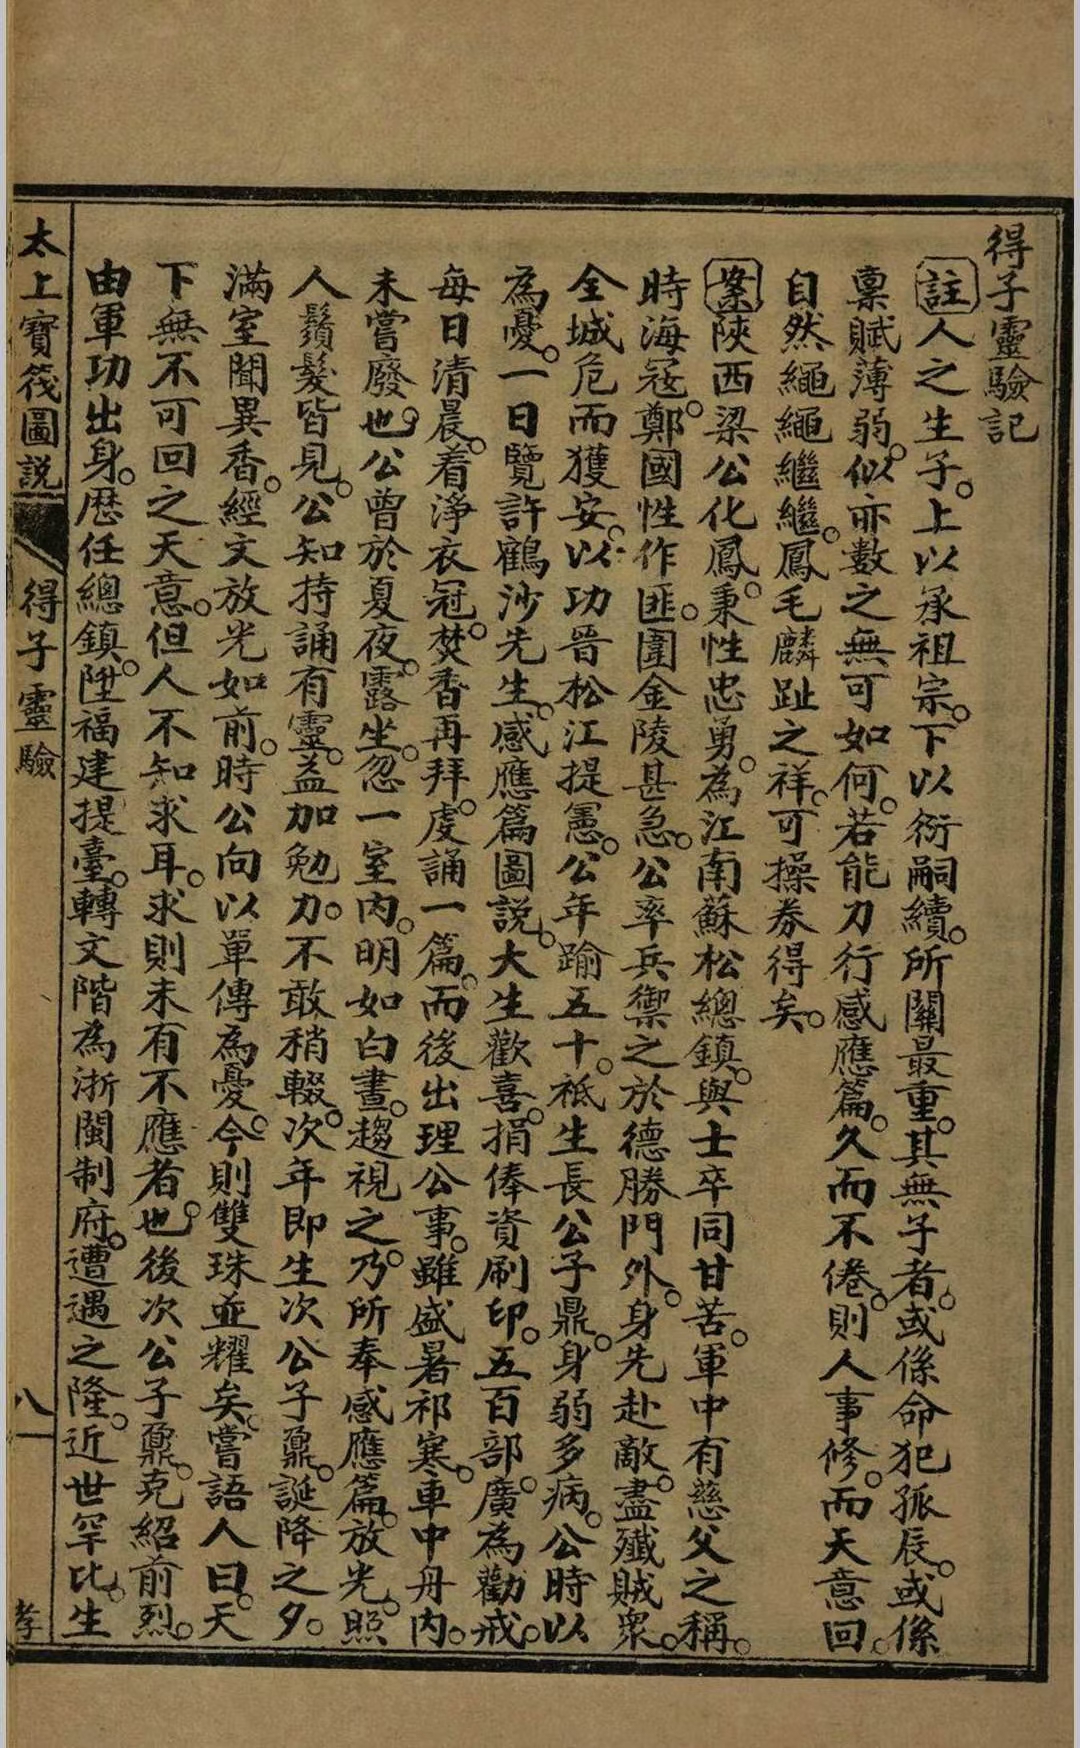 得子靈驗記
註人之生子。上以承祖宗。下以衍嗣續。所關最重。其無子者。或係命犯孤辰。或係
稟賦薄弱。似亦數之無可如何。若能力行感應篇。久而不倦。則人事修。而天意回。
自然繩繩繼繼。鳳毛麟趾之祥。可操券得矣。
案陝西梁公化鳳。秉性忠勇。為江南蘇松總鎮。與士卒同甘苦。軍中有慈父之稱。
時海寇。鄭國性作匪。圍金陵甚急。公率兵禦之於德勝門外。身先赴敵。盡殲賊衆。
全城危而獲安。以功晉松江提憲。公年踰五十。祗生長公子鼎。身弱多病。公時以
為憂。一日覽許鶴沙先生。感應篇圖説。大生歡喜。捐俸資刷印。五百部。廣為勸戒。
每日清晨。着淨衣冠。焚香再拜。虔誦一篇。而後出理公事。雖盛暑祁寒。車中舟內。
未嘗廢也。公曾於夏夜。露坐。忽一室內。明如白晝。趨視之。乃所奉感應篇。放光。照
人鬚髮皆見。公知持誦有靈。益加勉力。不敢稍輟。次年即生次公子鼐。誕降之夕。
滿室聞異香。經文放光如前。時公向以單傳為憂。今則雙珠並耀矣。嘗語人曰。天
下無不可回之天意。但人不知求耳。求則未有不應者。也後次公子鼐。克紹前烈。
由軍功出身。歷任總鎮。陞福建提臺。轉文階為浙閩制府。遭遇之隆。近世罕比。生
太上寶筏圖説 得子靈驗 八一 孝